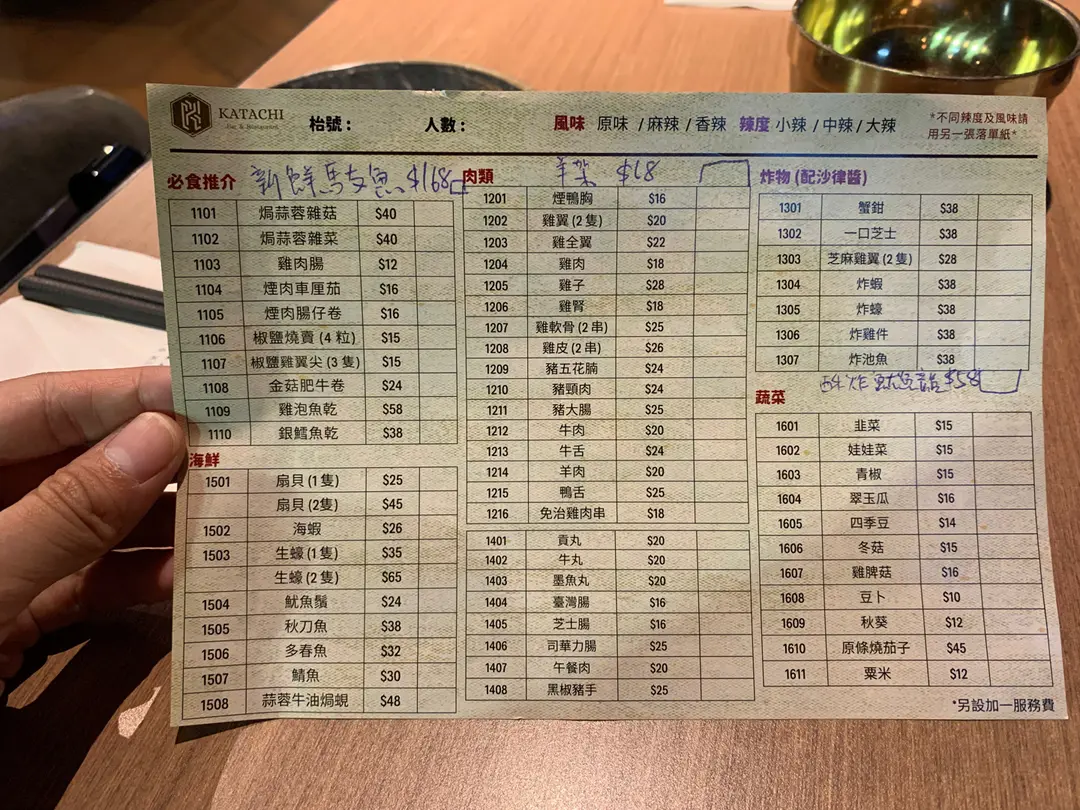 KATACHI
Bar & Restaurant
枱號： 人數： 風味 原味 / 麻辣 / 香辣 辣度 小辣 / 中辣 / 大辣
*不同辣度及風味請
用另一張落單紙*
必食推介 新鮮馬友魚 $168
1101 焗蒜蓉雜菇 $40
1102 焗蒜蓉雜菜 $40
1103 雞肉腸 $12
1104 煙肉車厘茄 $16
1105 煙肉腸仔卷 $16
1106 椒鹽燒賣 (4 粒) $15
1107 椒鹽雞翼尖 (3 隻) $15
1108 金菇肥牛卷 $24
1109 雞泡魚乾 $58
1110 銀鱈魚乾 $38
海鮮
1501 扇貝 (1 隻) $25
扇貝 (2隻) $45
1502 海蝦 $26
1503 生蠔 (1 隻) $35
生蠔 (2 隻) $65
1504 魷魚鬚 $24
1505 秋刀魚 $38
1506 多春魚 $32
1507 鯖魚 $30
1508 蒜蓉牛油焗蜆 $48
肉類 羊架 $68
1201 煙鴨胸 $16
1202 雞翼 (2 隻) $20
1203 雞全翼 $22
1204 雞肉 $18
1205 雞子 $28
1206 雞腎 $18
1207 雞軟骨 (2 串) $25
1208 雞皮 (2 串) $26
1209 豬五花腩 $24
1210 豬頸肉 $24
1211 豬大腸 $25
1212 牛肉 $20
1213 牛舌 $24
1214 羊肉 $20
1215 鴨舌 $25
1216 免治雞肉串 $18
1401 貢丸 $20
1402 牛丸 $20
1403 墨魚丸 $20
1404 臺灣腸 $16
1405 芝士腸 $16
1406 司華力腸 $25
1407 午餐肉 $20
1408 黑椒豬手 $25
炸物 (配沙律醬)
1301 蟹鉗 $38
1302 一口芝士 $38
1303 芝麻雞翼 (2 隻) $28
1304 炸蝦 $38
1305 炸蠔 $38
1306 炸雞件 $38
1307 炸池魚 $38
酥炸魷魚鬚 $58
蔬菜
1601 韭菜 $15
1602 娃娃菜 $15
1603 青椒 $15
1604 翠玉瓜 $16
1605 四季豆 $14
1606 冬菇 $15
1607 雞脾菇 $16
1608 豆卜 $10
1609 秋葵 $12
1610 原條燒茄子 $45
1611 粟米 $12
*另設加一服務費